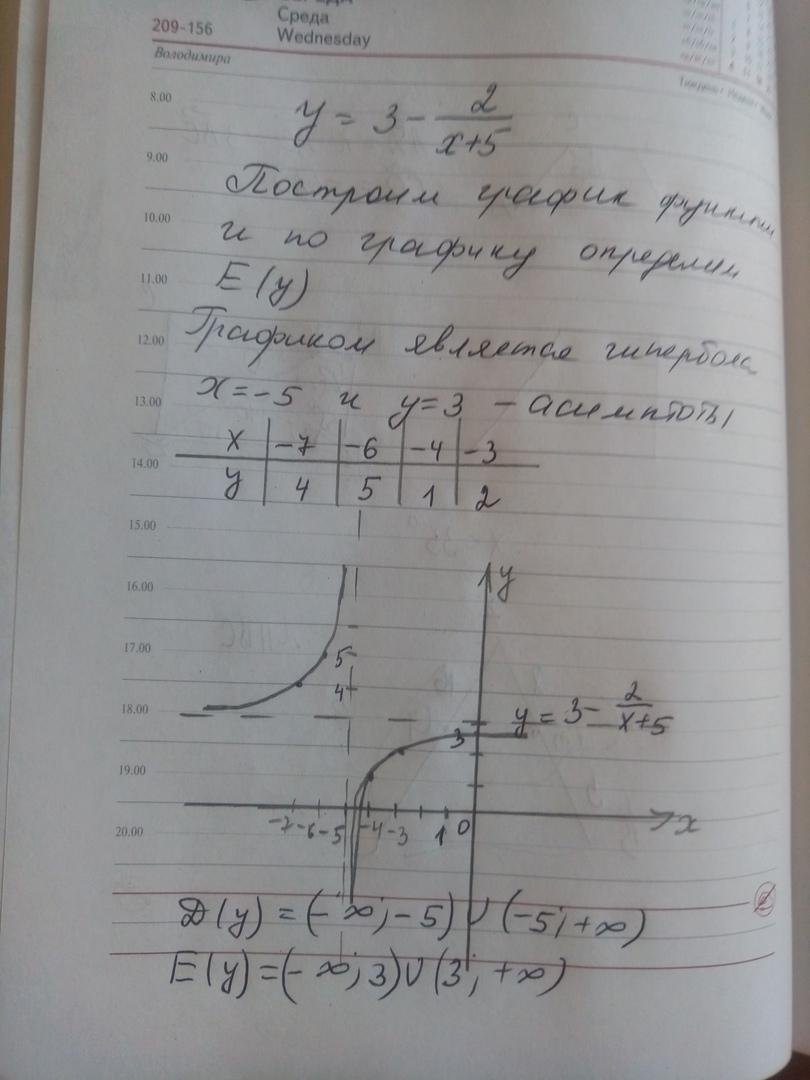 209-156
Среда
Wednesday
Володимира
8.00
y = 3 - 2/(x+5)
9.00
Построим график функции
10.00
и по графику определим
11.00
E(y)
12.00
Графиком является гипербола
13.00
x = -5 и y = 3 - асимптоты
x | -7 | -6 | -4 | -3
14.00
y | 4 | 5 | 1 | 2
15.00
16.00
y
17.00
5
4
18.00
y = 3 - 2/(x+5)
3
19.00
-7 -6 -5 -4 -3 1 0 x
20.00
D(y) = (-∞; -5) ∪ (-5; +∞)
E(y) = (-∞; 3) ∪ (3; +∞)